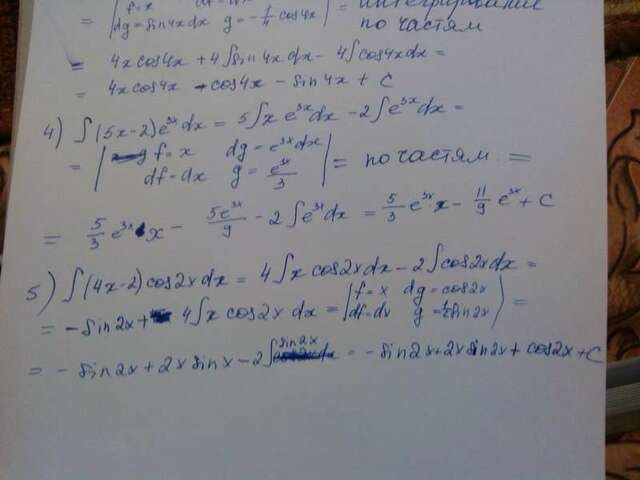 = | f=x
dg=sin4xdx g=-1/4 cos4x | = интегрирование
по частям
= 4xcos4x + 4∫sin4xdx - 4∫cos4xdx =
= 4xcos4x - cos4x - sin4x + C
4) ∫(5x-2)e^{3x}dx = 5∫x e^{3x}dx - 2∫e^{3x}dx =
= | f=x dg=e^{3x}dx
df=dx g=e^{3x}/3 | = по частям =
= 5/3 e^{3x}·x - 5e^{3x}/9 - 2∫e^{3x}dx = 5/3 e^{3x}·x - 11/9 e^{3x} + C
5) ∫(4x-2)cos2xdx = 4∫x cos2xdx - 2∫cos2xdx =
= -sin2x + 4∫x cos2x dx = | f=x dg=cos2x
df=dx g=1/2 sin2x | =
= -sin2x + 2x sinx - 2∫sin2x = -sin2x + 2x sin2x + cos2x + C